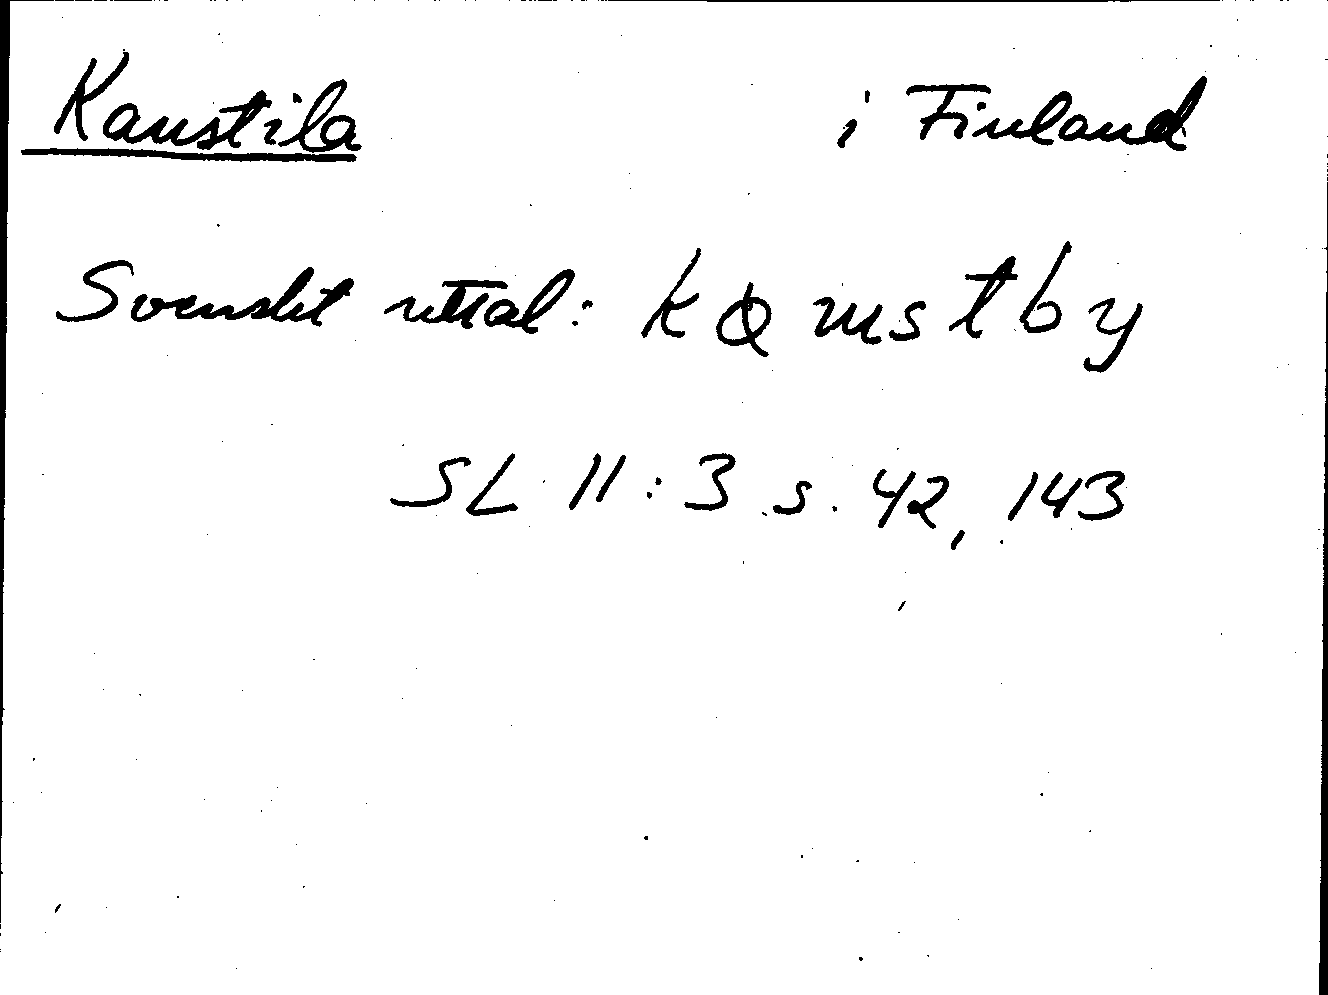 Kanstila i Finland
Svenskt uttal: kɑmstby
SL 11:3 s. 42, 143